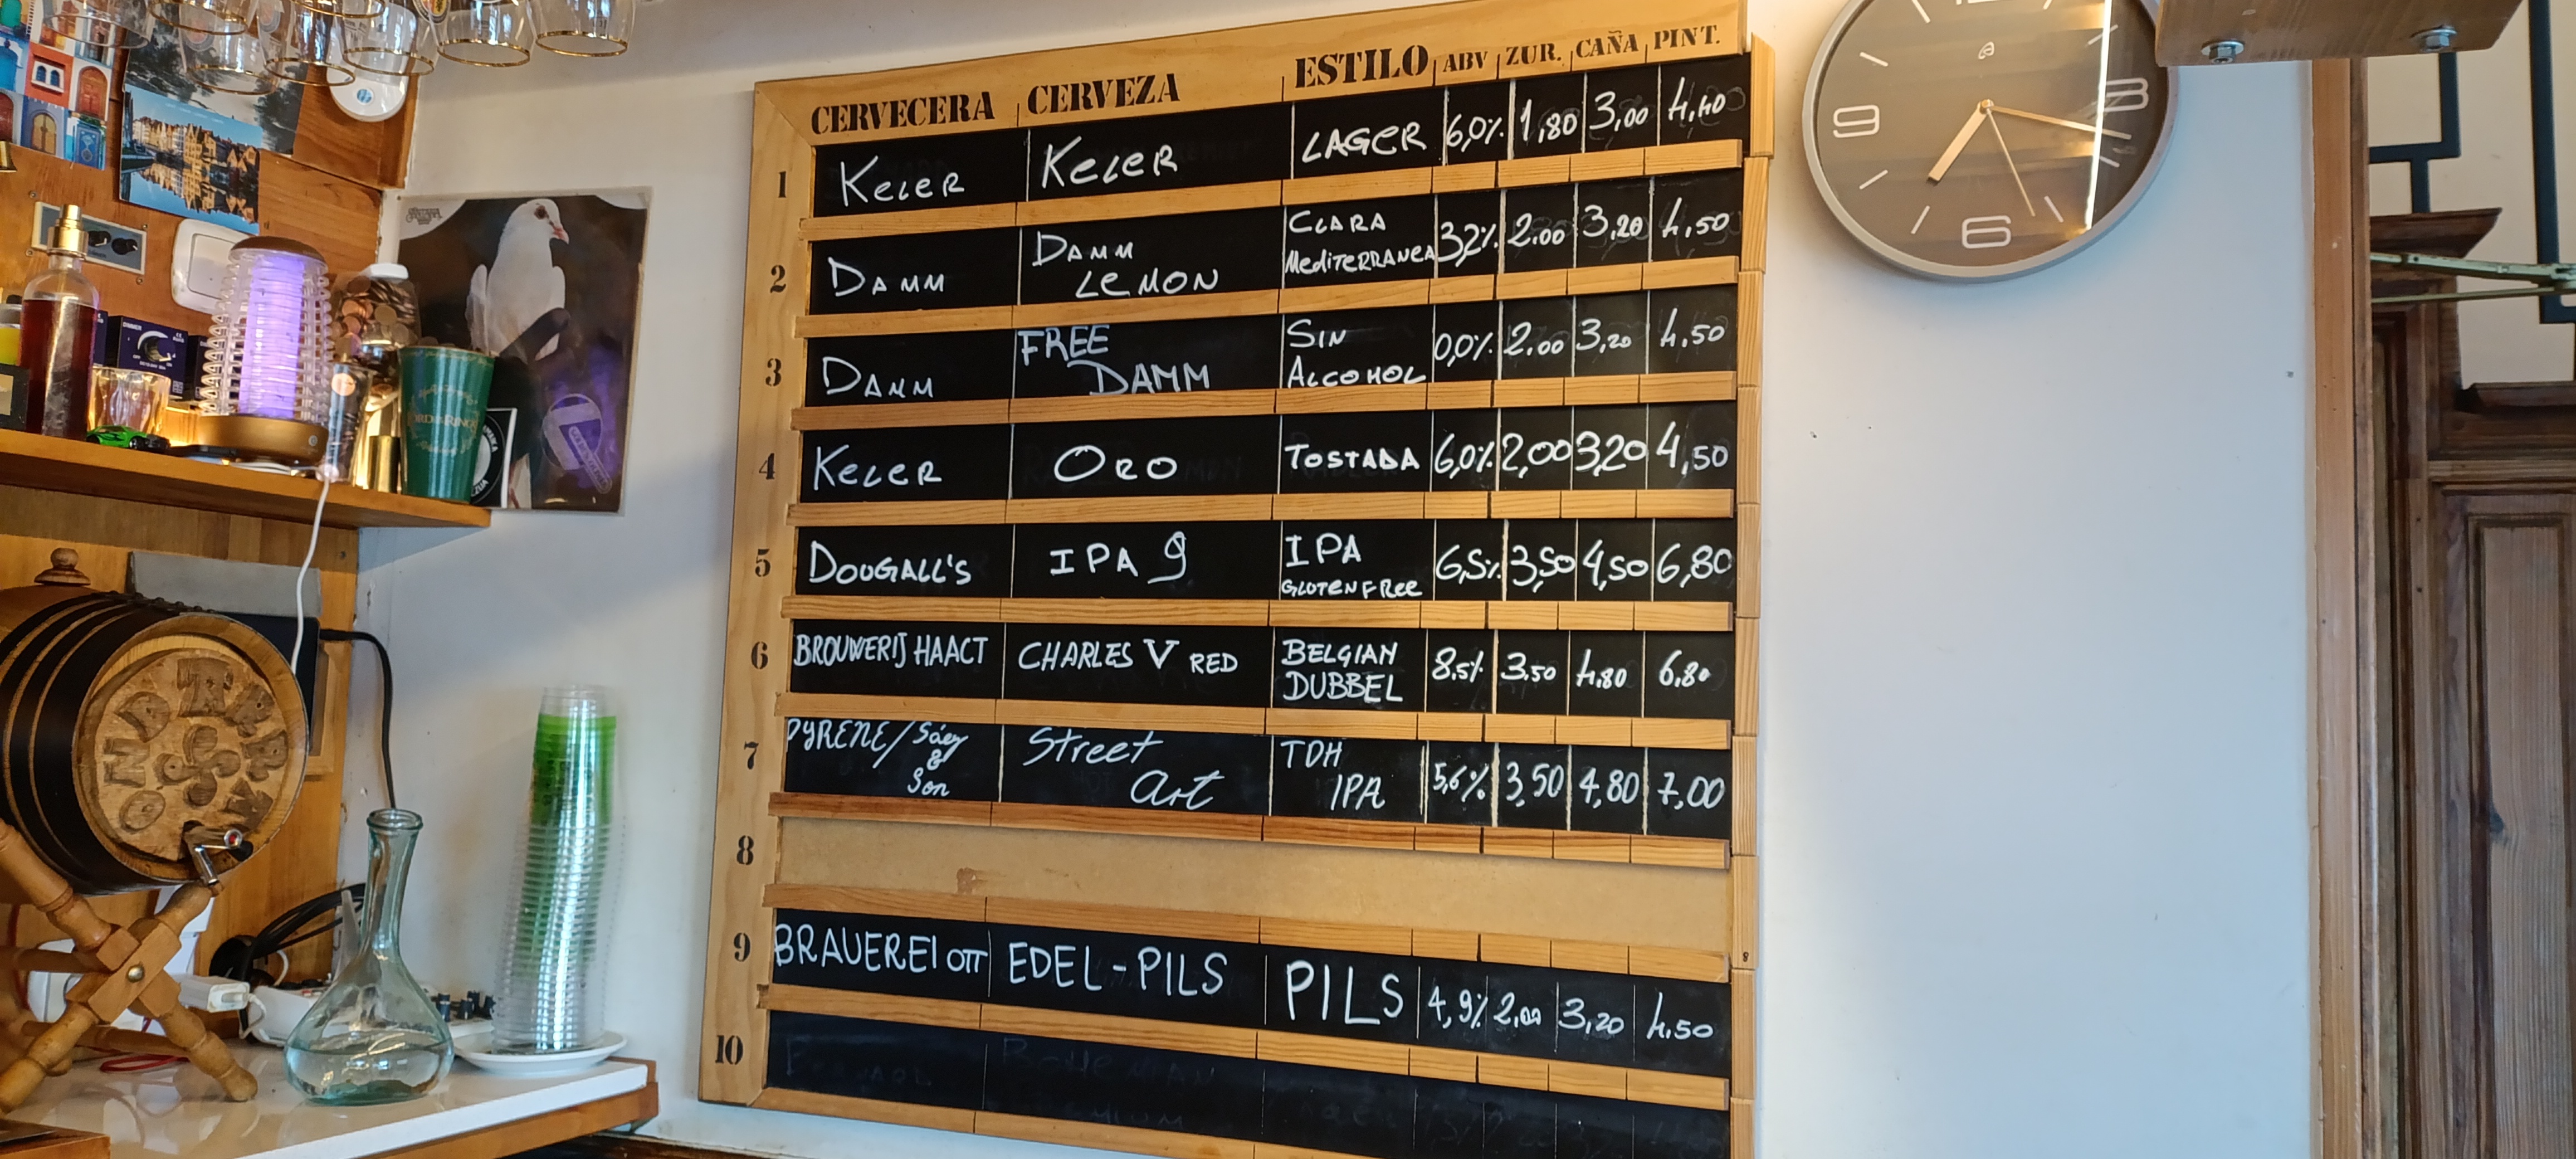 CERVECERA CERVEZA ESTILO ABV ZUR. CAÑA PINT.
1 KELER KELER LAGER 6,0% 1,80 3,00 4,40
2 DAMM DAMM LEMON CLARA MEDITERRANEA 3,2% 2.00 3,20 4,50
3 DAMM FREE DAMM SIN ALCOHOL 0,0% 2.00 3,20 4,50
4 KELER ORO TOSTADA 6,0% 2,00 3,20 4,50
5 DOUGALL'S IPA 9 IPA GLUTEN FREE 6,5% 3,50 4,50 6,80
6 BROUWERIJ HAACT CHARLES V RED BELGIAN DUBBEL 8.5% 3.50 4.80 6.80
7 PYRENE/Sáez & Son Street Art TDH IPA 5,6% 3,50 4,80 7,00
8
9 BRAUEREI OTT EDEL-PILS PILS 4,9% 2,00 3,20 4.50
10
9 3 6